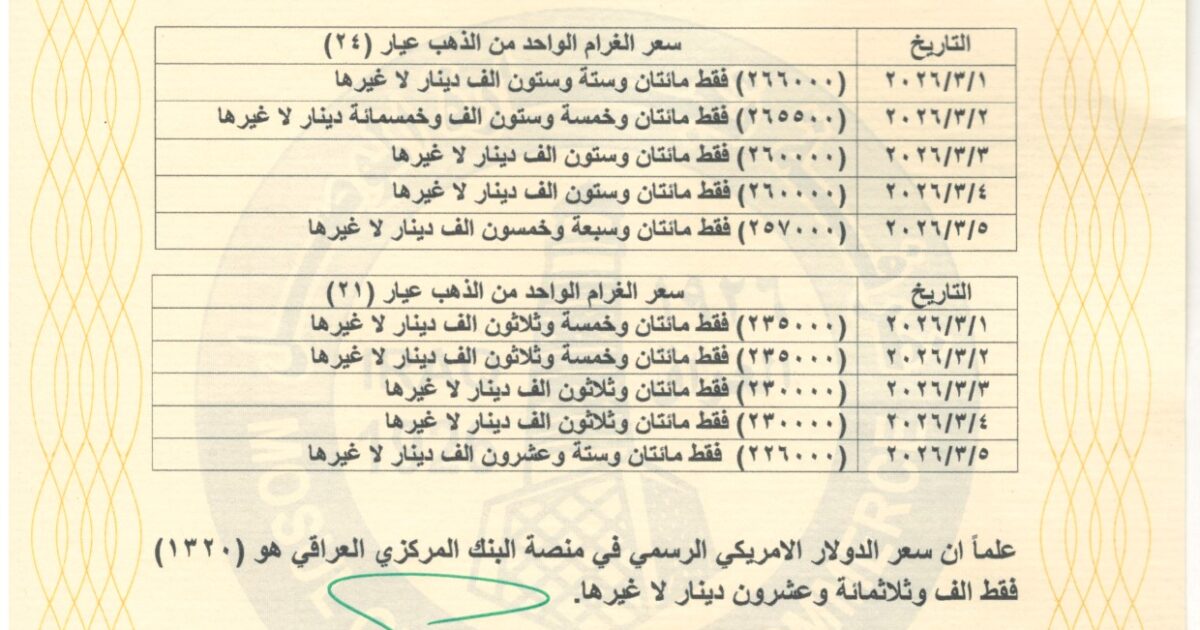 التاريخ سعر الغرام الواحد من الذهب عيار (٢٤)
٢٠٢٦/٣/١ (٢٦٦٠٠٠) فقط مائتان وستة وستون الف دينار لا غيرها
٢٠٢٦/٣/٢ (٢٦٥٥٠٠) فقط مائتان وخمسة وستون الف وخمسمائة دينار لا غيرها
٢٠٢٦/٣/٣ (٢٦٠٠٠٠) فقط مائتان وستون الف دينار لا غيرها
٢٠٢٦/٣/٤ (٢٦٠٠٠٠) فقط مائتان وستون الف دينار لا غيرها
٢٠٢٦/٣/٥ (٢٥٧٠٠٠) فقط مائتان وسبعة وخمسون الف دينار لا غيرها
التاريخ سعر الغرام الواحد من الذهب عيار (٢١)
٢٠٢٦/٣/١ (٢٣٥٠٠٠) فقط مائتان وخمسة وثلاثون الف دينار لا غيرها
٢٠٢٦/٣/٢ (٢٣٥٠٠٠) فقط مائتان وخمسة وثلاثون الف دينار لا غيرها
٢٠٢٦/٣/٣ (٢٣٠٠٠٠) فقط مائتان وثلاثون الف دينار لا غيرها
٢٠٢٦/٣/٤ (٢٣٠٠٠٠) فقط مائتان وثلاثون الف دينار لا غيرها
٢٠٢٦/٣/٥ (٢٢٦٠٠٠) فقط مائتان وستة وعشرون الف دينار لا غيرها
علماً ان سعر الدولار الامريكي الرسمي في منصة البنك المركزي العراقي هو (١٣٢٠)
فقط الف وثلاثمائة وعشرون دينار لا غيرها.